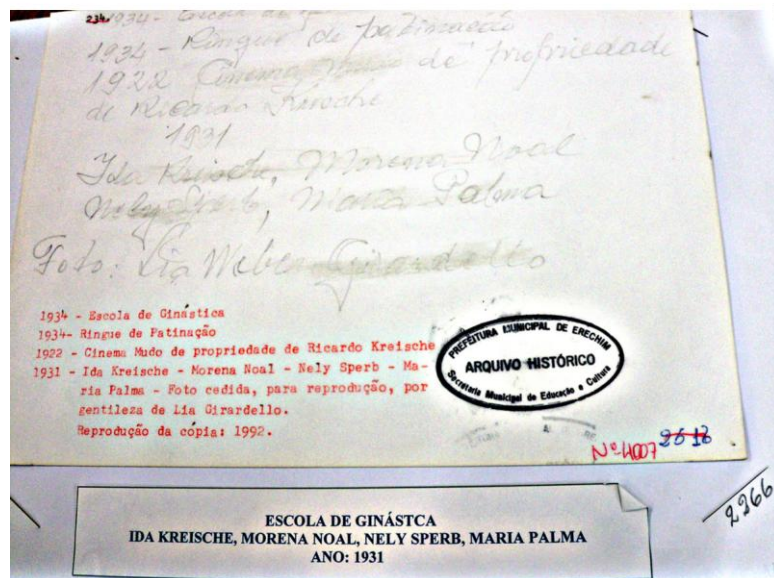 234.
1934 - Escola de
1934 - Ringue de patinação
1922 Cinema Mudo de propriedade
de Ricardo Kreische
1931
Ida Kreische, Morena Noal
Nely Sperb, Maria Palma
Foto: Lia Weber Girardello
1934 - Escola de Ginástica
1934- Ringue de Patinação
1922 - Cinema Mudo de propriedade de Ricardo Kreische
1931 - Ida Kreische - Morena Noal - Nely Sperb - Ma-
ria Palma - Foto cedida, para reprodução, por
gentileza de Lia Girardello.
Reprodução da cópia: 1992.
PREFEITURA MUNICIPAL DE ERECHIM
ARQUIVO HISTÓRICO
Secretaria Municipal de Educação e Cultura
Nº 4007
2966
ESCOLA DE GINÁSTCA
IDA KREISCHE, MORENA NOAL, NELY SPERB, MARIA PALMA
ANO: 1931